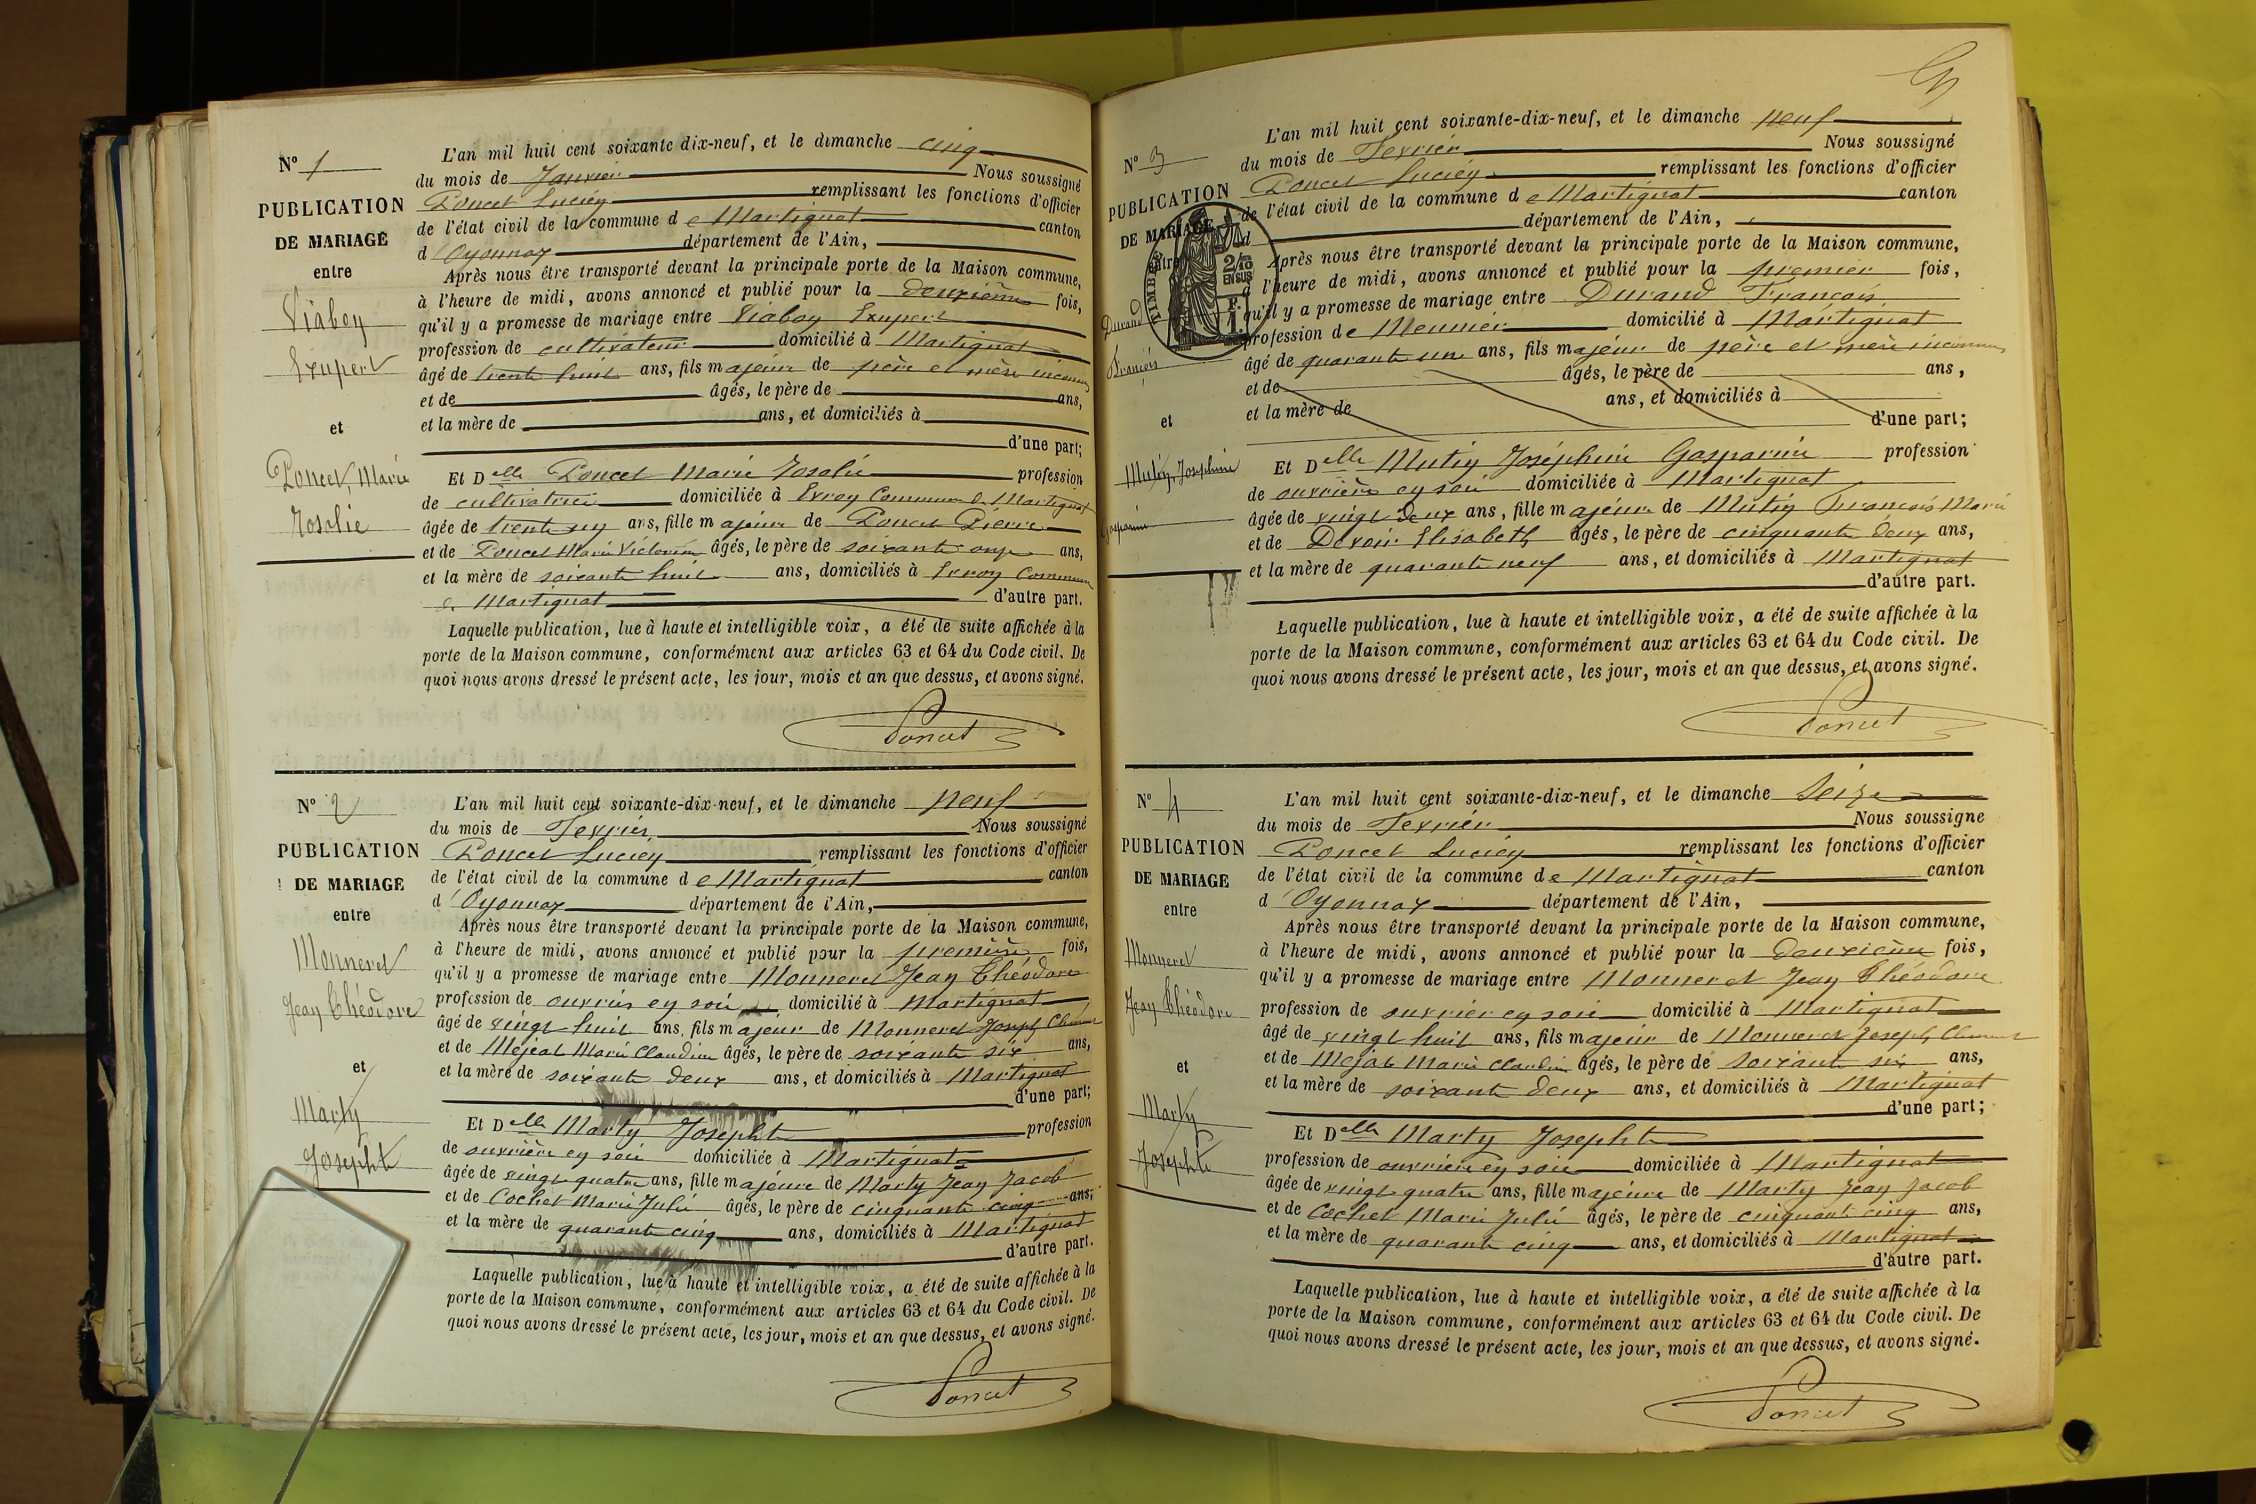 N° 1
PUBLICATION
DE MARIAGE
entre
Viaboy
Exupert
et
Poncet, Marie
Rosalie
L'an mil huit cent soixante dix-neuf, et le dimanche cinq
du mois de Janvier Nous soussigné
Poncet Lucien remplissant les fonctions d'officier
de l'état civil de la commune de Martignat canton
d'Oyonnax département de l'Ain,
Après nous être transporté devant la principale porte de la Maison commune,
à l'heure de midi, avons annoncé et publié pour la deuxième fois,
qu'il y a promesse de mariage entre Viaboy Exupert
profession de cultivateur domicilié à Martignat
âgé de trente huit ans, fils majeur de père et mère inconnus
et de âgés, le père de ans,
et la mère de ans, et domiciliés à
d'une part;
Et Delle Poncet Marie Rosalie profession
de cultivatrice domiciliée à Evroy Commune de Martignat
âgée de trente un ans, fille majeure de Poncet Pierre
et de Poncet Marie Victorine âgés, le père de soixante onze ans,
et la mère de soixante huit ans, domiciliés à Evroy Commune
de Martignat d'autre part.
Laquelle publication, lue à haute et intelligible voix, a été de suite affichée à la
porte de la Maison commune, conformément aux articles 63 et 64 du Code civil. De
quoi nous avons dressé le présent acte, les jour, mois et an que dessus, et avons signé.
Poncet
N° 2
PUBLICATION
DE MARIAGE
entre
Monneret
Jean Théodore
et
Marty
Josephte
L'an mil huit cent soixante-dix-neuf, et le dimanche neuf
du mois de Fevrier Nous soussigné
Poncet Lucien remplissant les fonctions d'officier
de l'état civil de la commune de Martignat canton
d'Oyonnax département de l'Ain,
Après nous être transporté devant la principale porte de la Maison commune,
à l'heure de midi, avons annoncé et publié pour la première fois,
qu'il y a promesse de mariage entre Monneret Jean Théodore
profession de ouvrier en soie domicilié à Martignat
âgé de vingt huit ans, fils majeur de Monneret Joseph
et de Mejat Marie Claudine âgés, le père de soixante six ans,
et la mère de soixante deux ans, et domiciliés à Martignat
d'une part;
Et Delle Marty Josephte profession
de ouvrière en soie domiciliée à Martignat
âgée de vingt quatre ans, fille majeure de Marty Jean Jacob
et de Cochet Marie Julie âgés, le père de cinquante cinq ans,
et la mère de quarante cinq ans, domiciliés à Martignat
d'autre part.
Laquelle publication, lue à haute et intelligible voix, a été de suite affichée à la
porte de la Maison commune, conformément aux articles 63 et 64 du Code civil. De
quoi nous avons dressé le présent acte, les jour, mois et an que dessus, et avons signé.
Poncet
N° 3
PUBLICATION
DE MARIAGE
entre
TIMBRE
2/10
EN SUS
F.
1.
Durand
François
et
Mutin, Josephine
Gasparine
L'an mil huit cent soixante-dix-neuf, et le dimanche neuf
du mois de Fevrier Nous soussigné
Poncet Lucien remplissant les fonctions d'officier
de l'état civil de la commune de Martignat canton
d département de l'Ain,
Après nous être transporté devant la principale porte de la Maison commune,
à l'heure de midi, avons annoncé et publié pour la premier fois,
qu'il y a promesse de mariage entre Durand François
profession de Meunier domicilié à Martignat
âgé de quarante un ans, fils majeur de père et mère inconnus
et de âgés, le père de ans,
et la mère de ans, et domiciliés à
d'une part;
Et Delle Mutin Joséphine Gasparine profession
de ouvrière en soie domiciliée à Martignat
âgée de vingt deux ans, fille majeure de Mutin François Marie
et de Devoir Elisabeth âgés, le père de cinquante deux ans,
et la mère de quarante neuf ans, et domiciliés à Martignat
d'autre part.
Laquelle publication, lue à haute et intelligible voix, a été de suite affichée à la
porte de la Maison commune, conformément aux articles 63 et 64 du Code civil. De
quoi nous avons dressé le présent acte, les jour, mois et an que dessus, et avons signé.
Poncet
N° 4
PUBLICATION
DE MARIAGE
entre
Monneret
Jean Théodore
et
Marty
Josephte
L'an mil huit cent soixante-dix-neuf, et le dimanche Seize
du mois de Fevrier Nous soussigne
Poncet Lucien remplissant les fonctions d'officier
de l'état civil de la commune de Martignat canton
d'Oyonnax département de l'Ain,
Après nous être transporté devant la principale porte de la Maison commune,
à l'heure de midi, avons annoncé et publié pour la deuxième fois,
qu'il y a promesse de mariage entre Monneret Jean Théodore
profession de ouvrier en soie domicilié à Martignat
âgé de vingt huit ans, fils majeur de Monneret Joseph
et de Mejat Marie Claudine âgés, le père de soixante six ans,
et la mère de soixante deux ans, et domiciliés à Martignat
d'une part;
Et Delle Marty Josephte
profession de ouvrière en soie domiciliée à Martignat
âgée de vingt quatre ans, fille majeure de Marty Jean Jacob
et de Cochet Marie Julie âgés, le père de cinquante cinq ans,
et la mère de quarante cinq ans, et domiciliés à Martignat
d'autre part.
Laquelle publication, lue à haute et intelligible voix, a été de suite affichée à la
porte de la Maison commune, conformément aux articles 63 et 64 du Code civil. De
quoi nous avons dressé le présent acte, les jour, mois et an que dessus, et avons signé.
Poncet